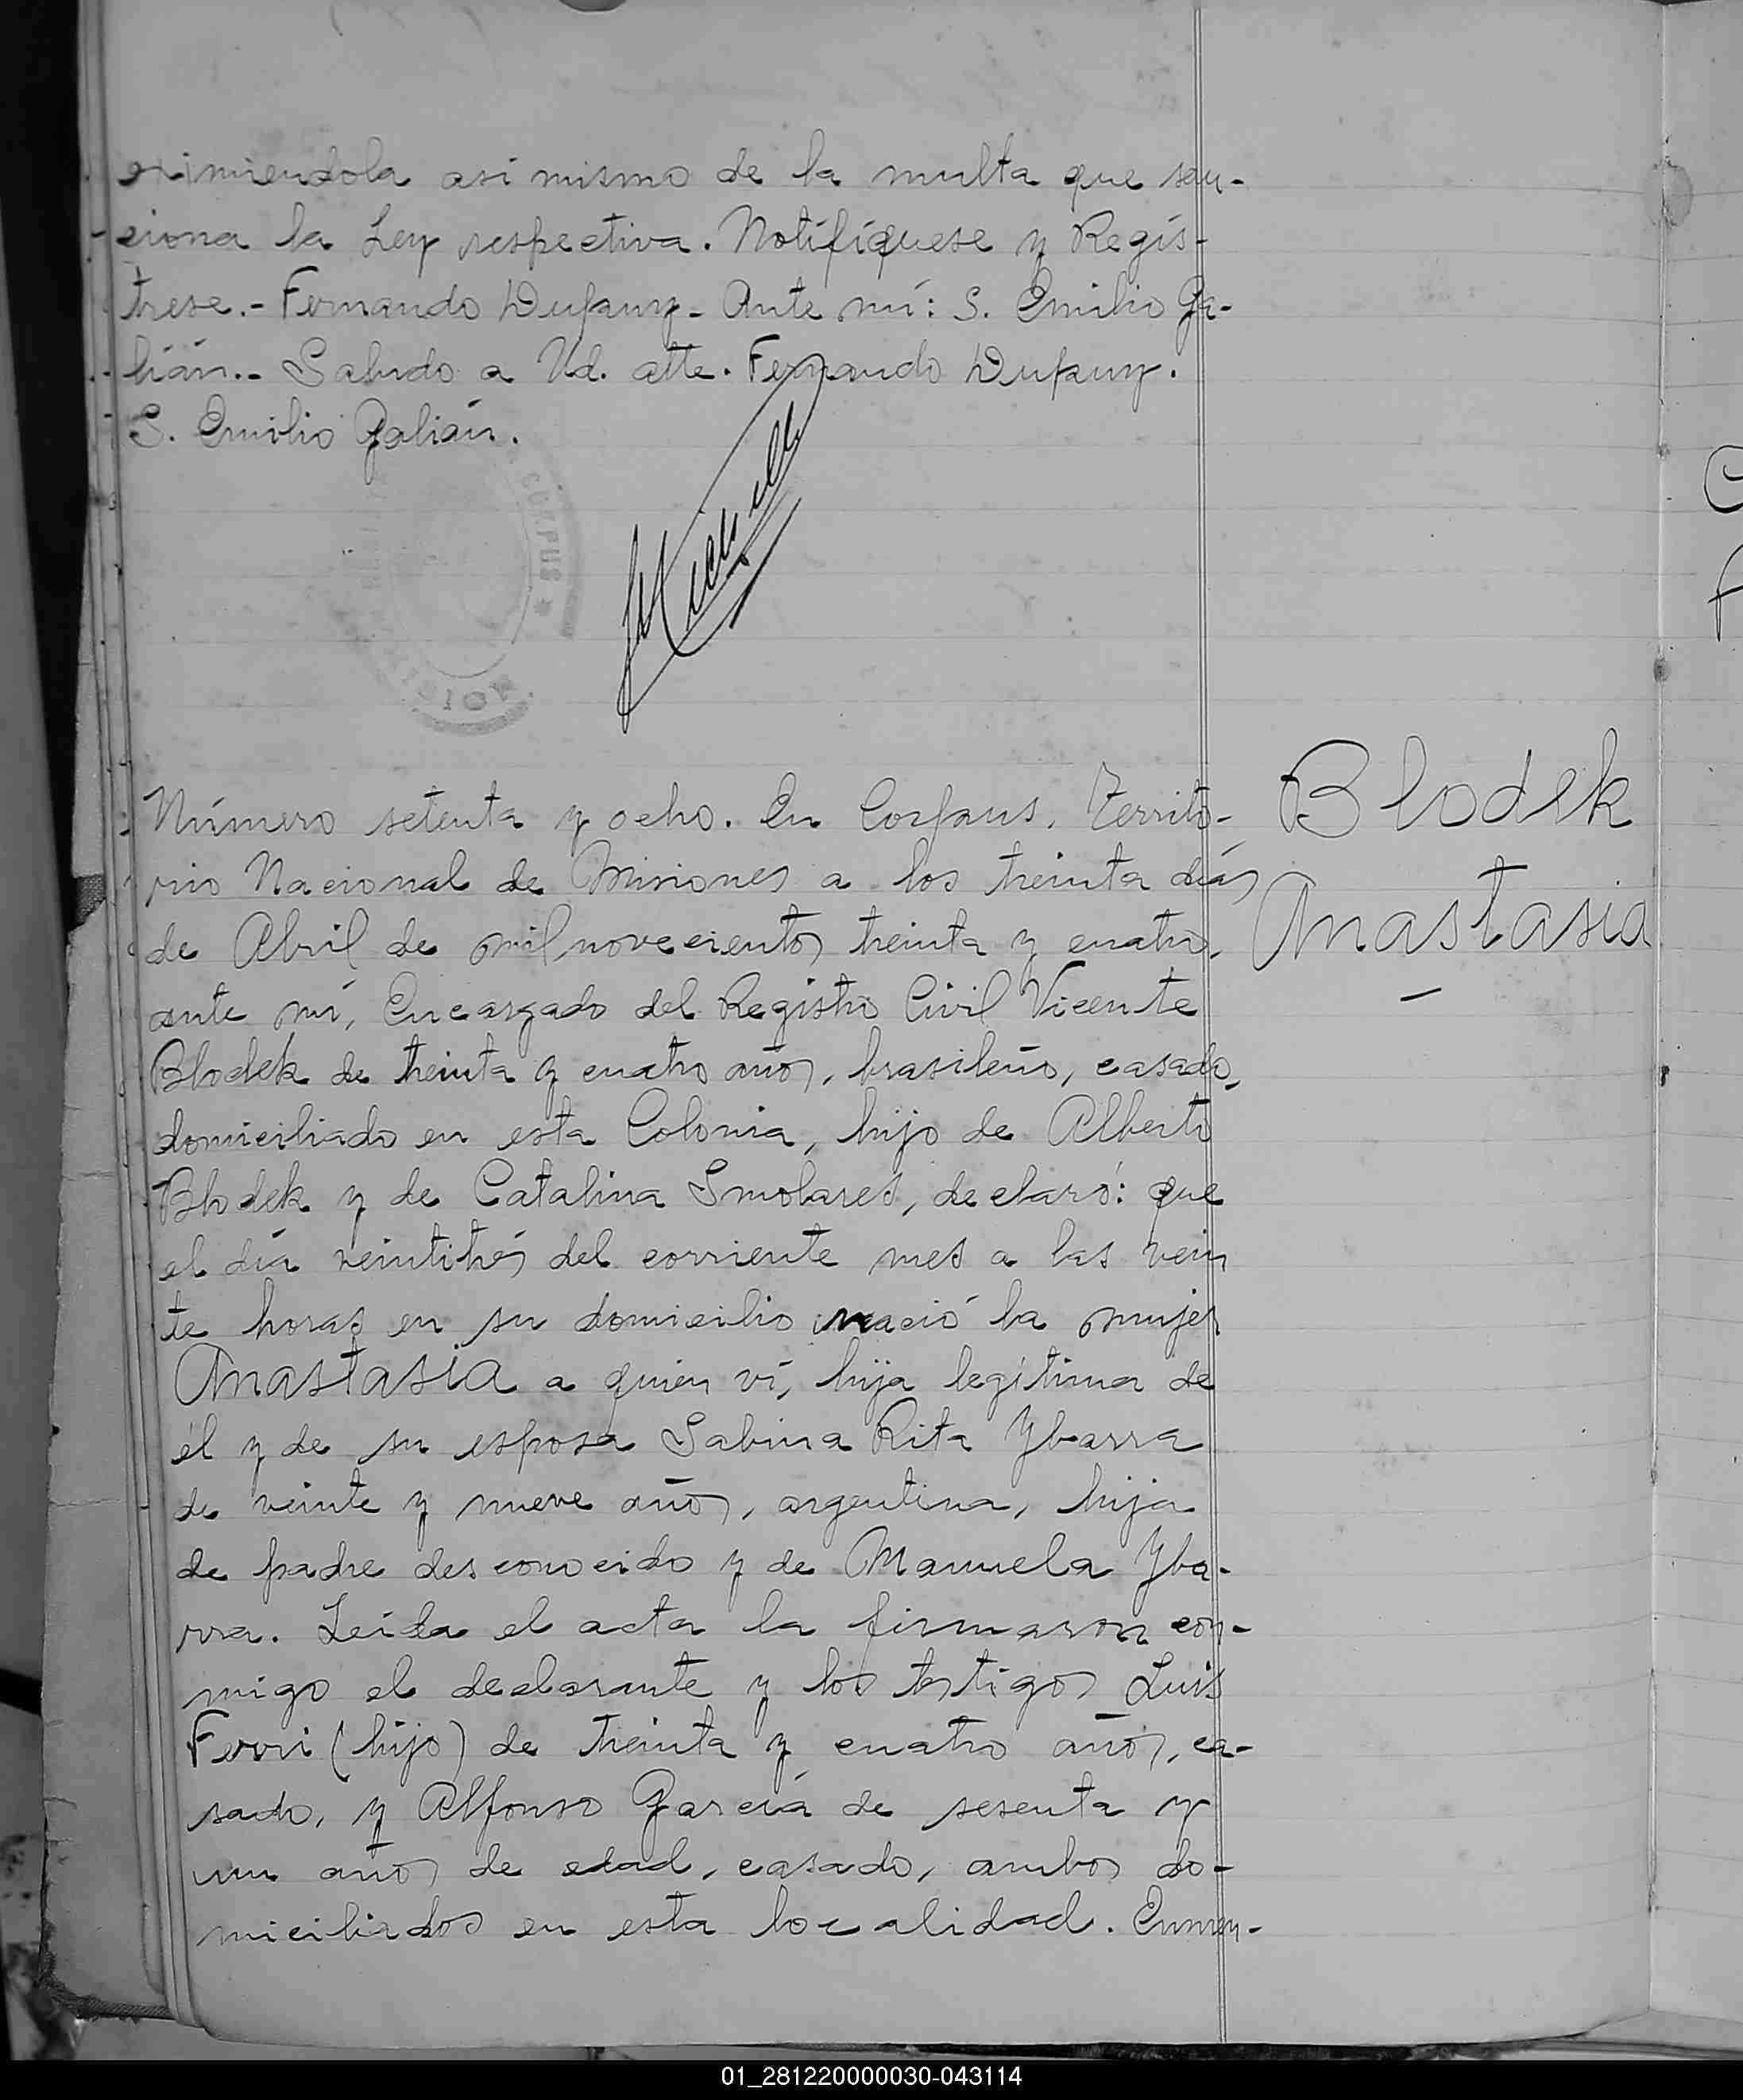 eximiendola asi mismo de la multa que san-
ciona la Ley respectiva. Notifíquese y Regís-
trese.- Fernando Dufauy- Ante mí: S. Emilio Ga-
lián.- Saludo a Ud. atte. Fernando Dufauy.
S. Emilio Galián.
CORPUS
Número setenta y ocho. En Corpus, Territo-
rio Nacional de Misiones a los treinta días
de Abril de mil novecientos treinta y cuatro,
ante mí, Encargado del Registro Civil Vicente
Blodek de treinta y cuatro años, brasileño, casado,
domiciliado en esta Colonia, hijo de Alberto
Blodek y de Catalina Smolares, declaró: que
el día veintitrés del corriente mes a las vein
te horas en su domicilio nació la mujer
Anastasia a quien ví, hija legítima de
él y de su esposa Sabina Rita Ybarra
de veinte y nueve años, argentina, hija
de padre desconocido y de Manuela Yba-
rra. Leída el acta la firmaron con-
migo el declarante y los testigos Luis
Ferri (hijo) de treinta y cuatro años, ca-
sado, y Alfonso García de sesenta y
un años de edad, casado, ambos do-
miciliados en esta localidad. Enmen-
Blodek
Anastasia
01_281220000030-043114